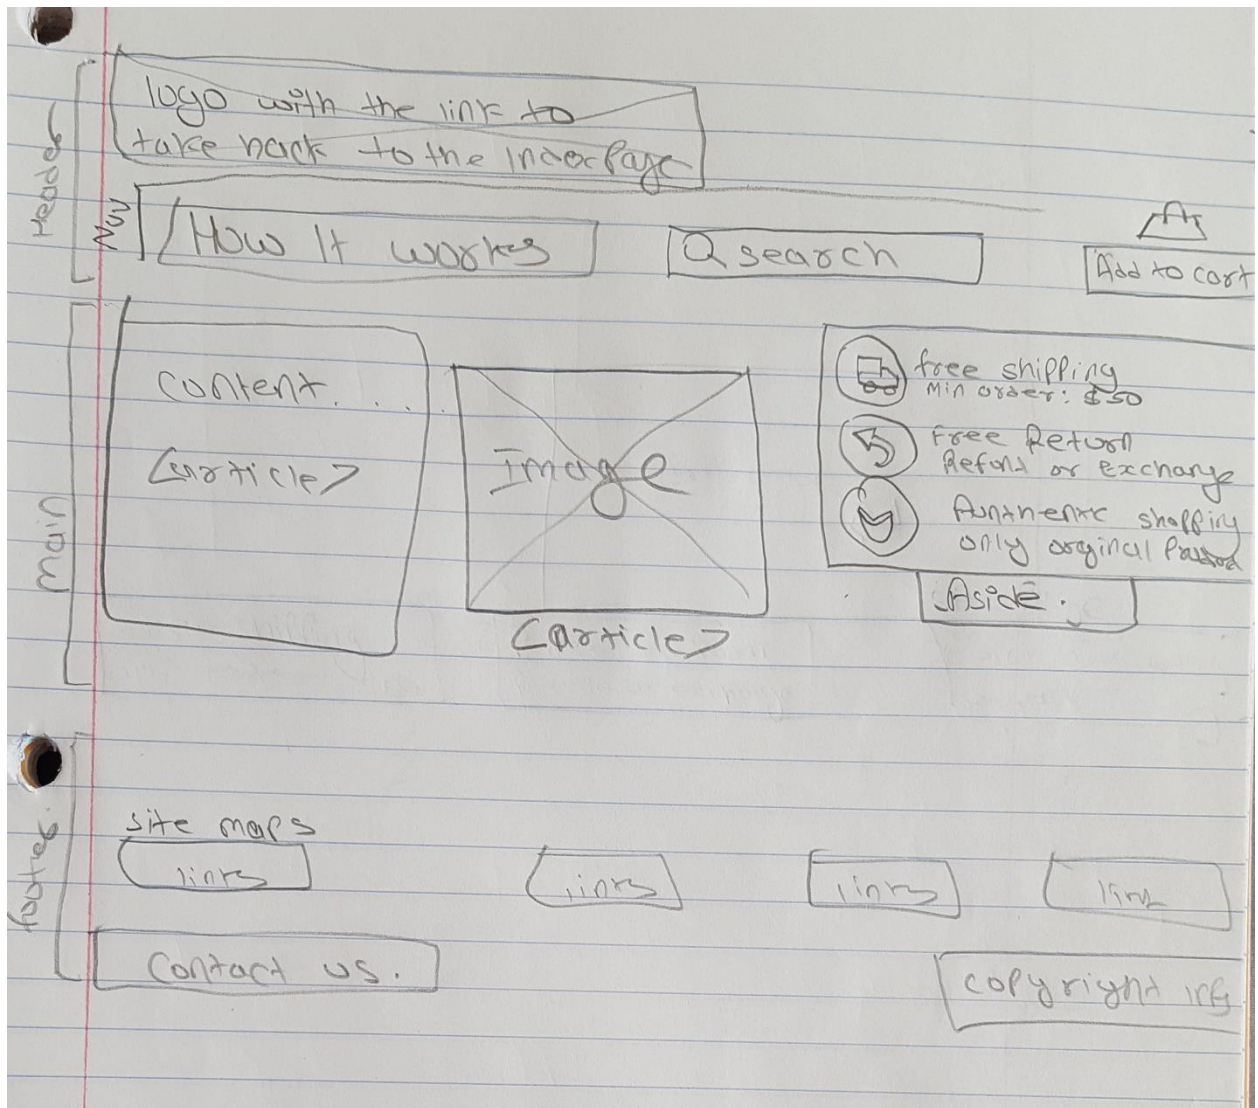 Header
logo with the link to
take back to the index Page
Nav
How It works
search
Add to cart
main
content. . . .
<article>
Image
<article>
free shipping
Min order: $50
Free Return
Refund or exchange
Aunthentic shopping
only orginal
Aside.
footer
site maps
links
links
links
link
Contact us.
copyright info